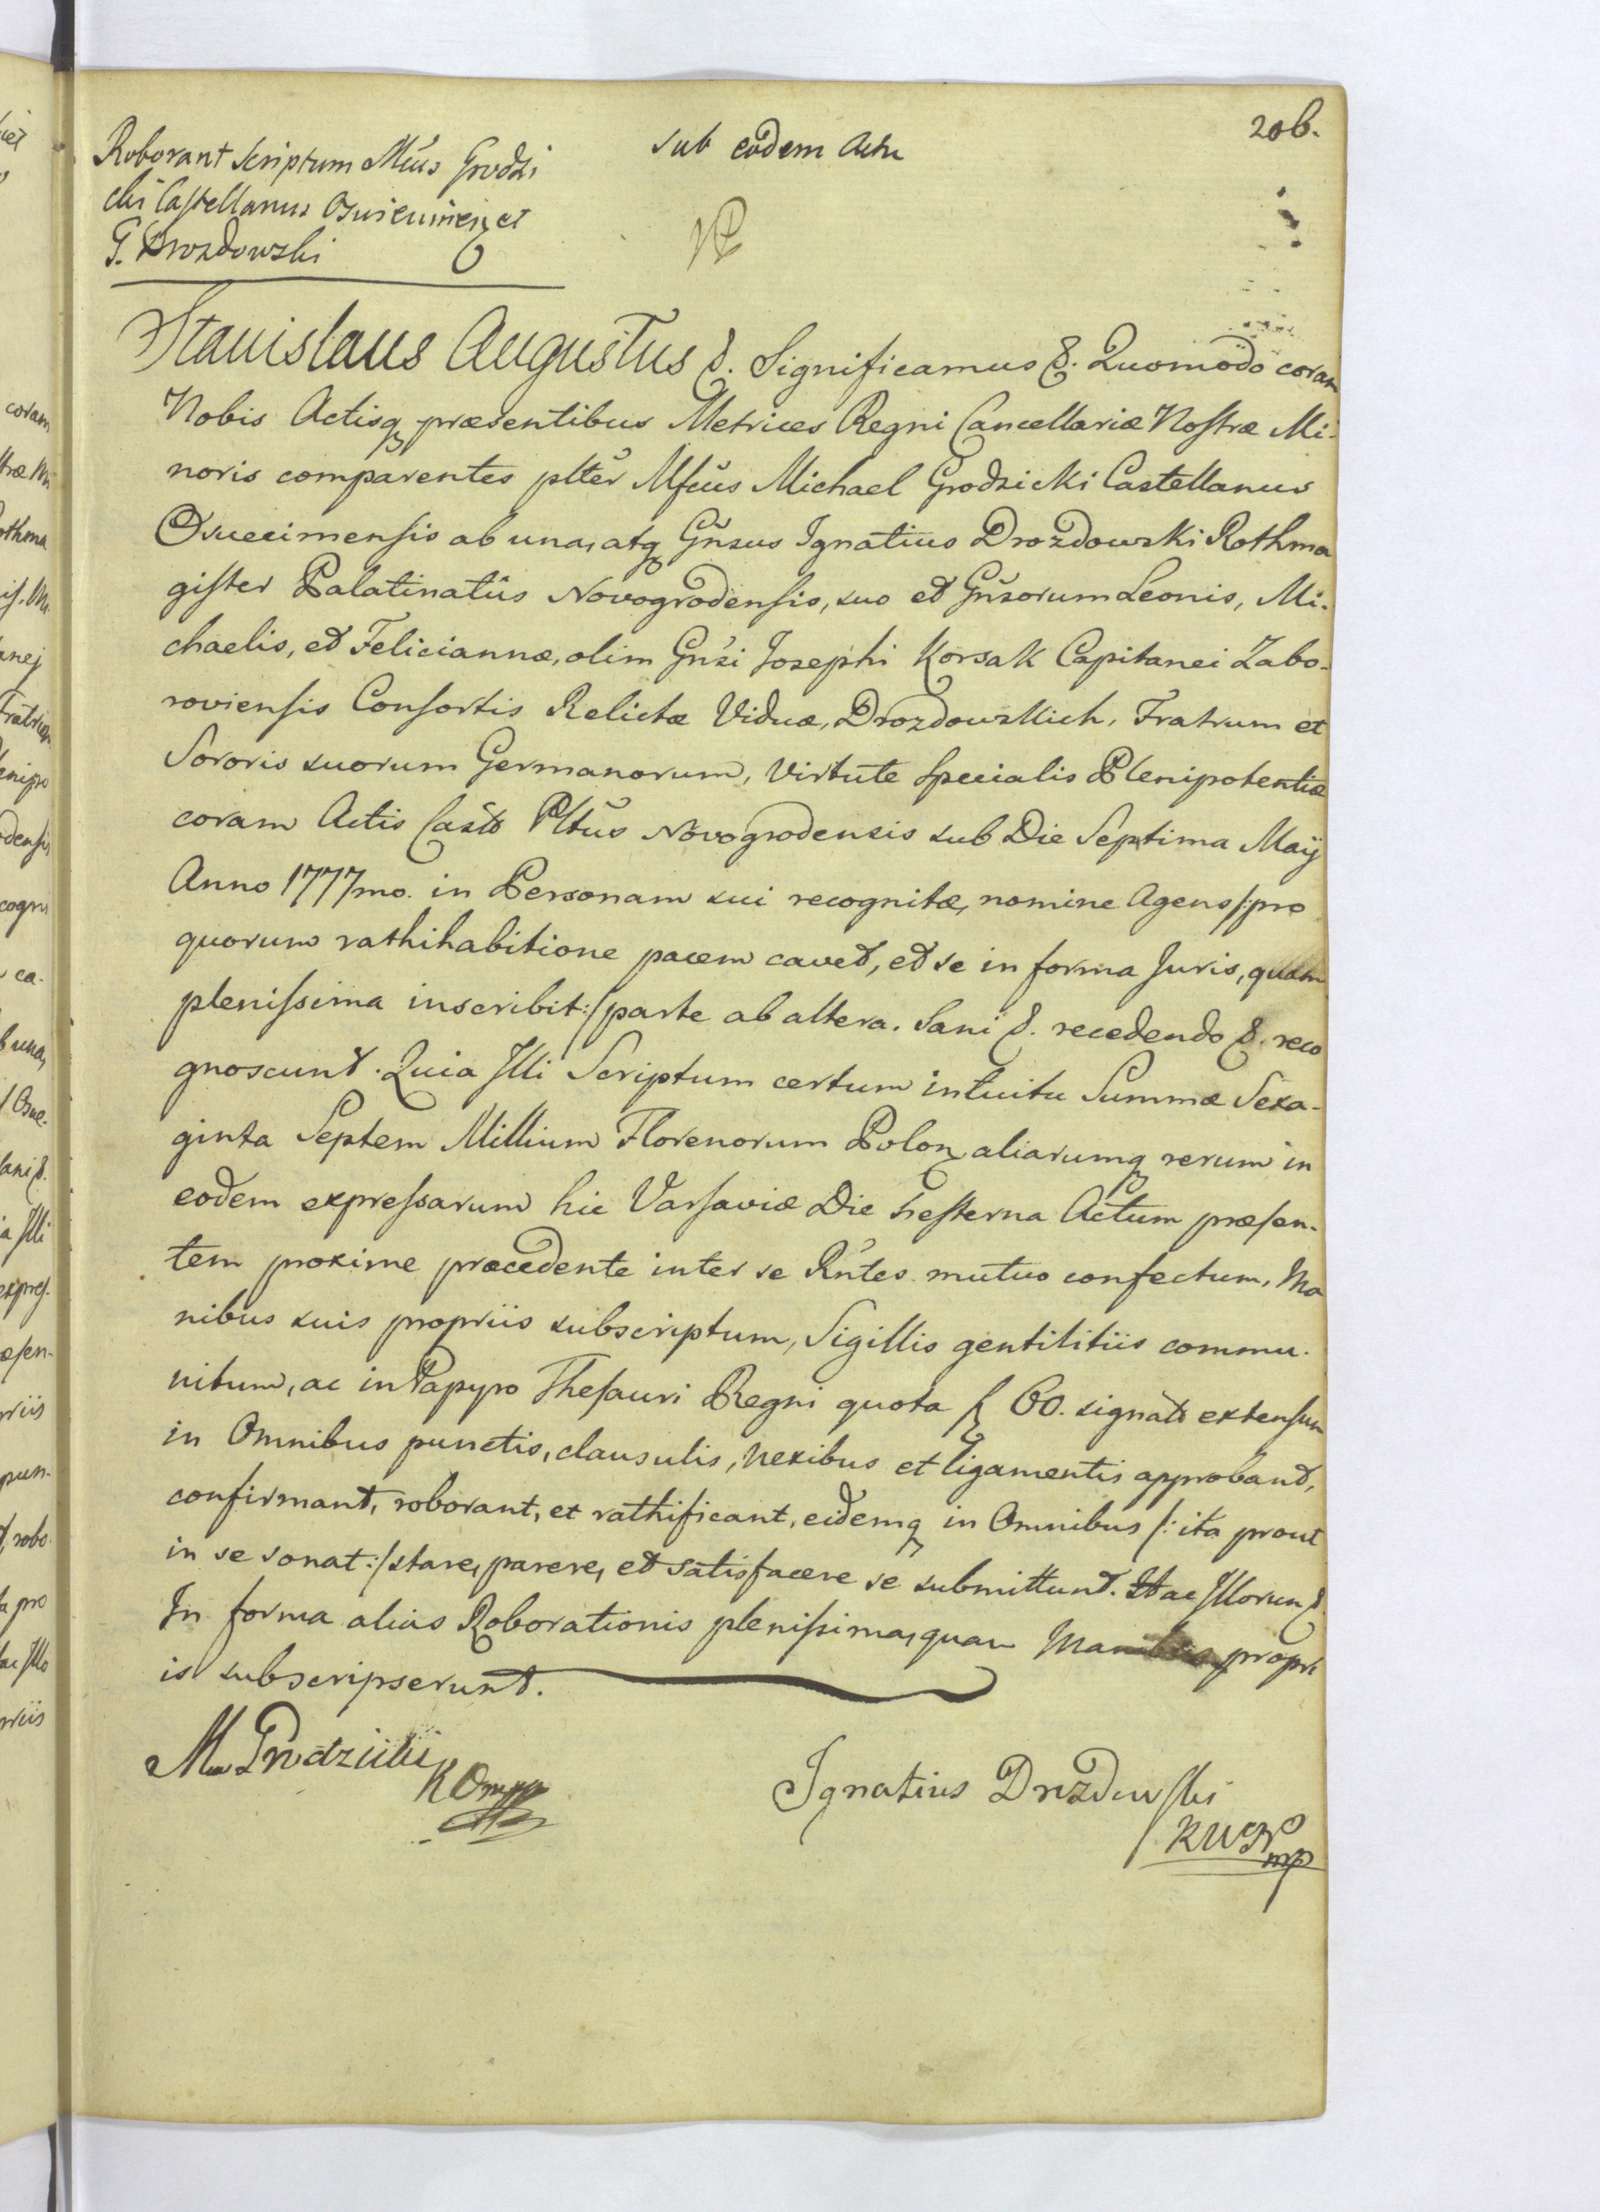 206.
sub eodem Actu
Roborant Scriptum Mcus Grodzi
cki Castellanus Oswiecimen et
G. Drozdowski
Stanislaus Augustus &. Significamus &. Quomodo coram
Nobis Actisq præsentibus Metrices Regni Cancellariæ Nostræ Mi-
noris comparentes plter Mfcus Michael Grodzicki Castellanus
Osuecimensis ab una, atq Gnsus Ignatius Drozdowski Rothma
gister Palatinatûs Novogrodensis, suo et Gnsorum Leonis, Mi-
chaelis, et Feliciannæ, olim Gnsi Josephi Korsak Capitanei Zabo-
roviensis Consortis Relictæ Viduæ, Drozdowskich, Fratrum et
Sororis suorum Germanorum, Virtute specialis Plenipotentiæ
coram Actis Castr Pltûs Novogrodensis sub Die Septima Maÿ
Anno 1777mo. in Personam sui recognitæ, nomine Agens /:pro
quorum rathihabitione pacem cavet, et se in forma Juris, quam
plenissima inscribit:/ parte ab altera. Sani &. recedendo &. reco
gnoscunt. Quia Illi Scriptum certum intuitu Summæ Sexa-
ginta Septem Millium Florenorum Polon aliarumq rerum in
eodem expressarum hic Varsaviæ Die hesterna Actum præsen-
tem proxime præcedente inter se Rntes mutuo confectum, Ma
nibus suis propriis subscriptum, Sigillis gentilitiis commu-
nitum, ac in Papyro Thesauri Regni quota f 60. signato extensum
in Omnibus punctis, clausulis, nexibus et ligamentis approbant,
confirmant, roborant, et rathificant, eidemq in Omnibus /: ita prout
in se sonat:/ stare, parere, et satisfacere se submittunt. Hac Illorum &.
In forma alias Roborationis plenissima, quam Manibus propri
is subscripserunt.
M Grodzicki
K O mp
Ignatius Drozdowski
RWN
mp